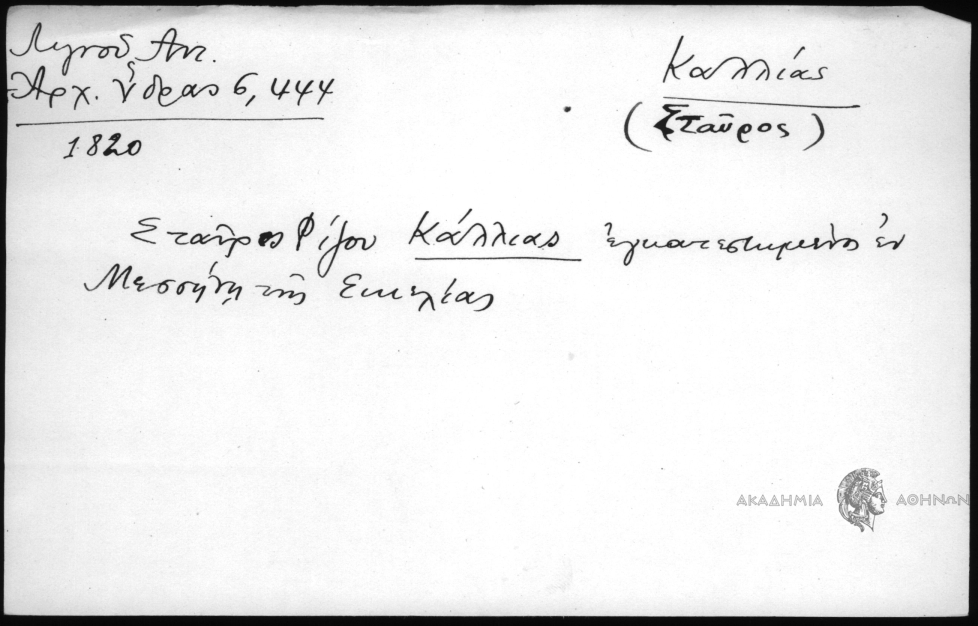 Λιγνοῦ Ἀντ.
Ἀρχ. Ὕδρας 6, 444
1820
Καλλίας
(Σταῦρος)
Σταῦρος Ρίζου Κάλλιας ἐγκατεστημένος ἐν
Μεσσήνῃ τῆς Σικελίας
ΑΚΑΔΗΜΙΑ ΑΘΗΝΩΝ